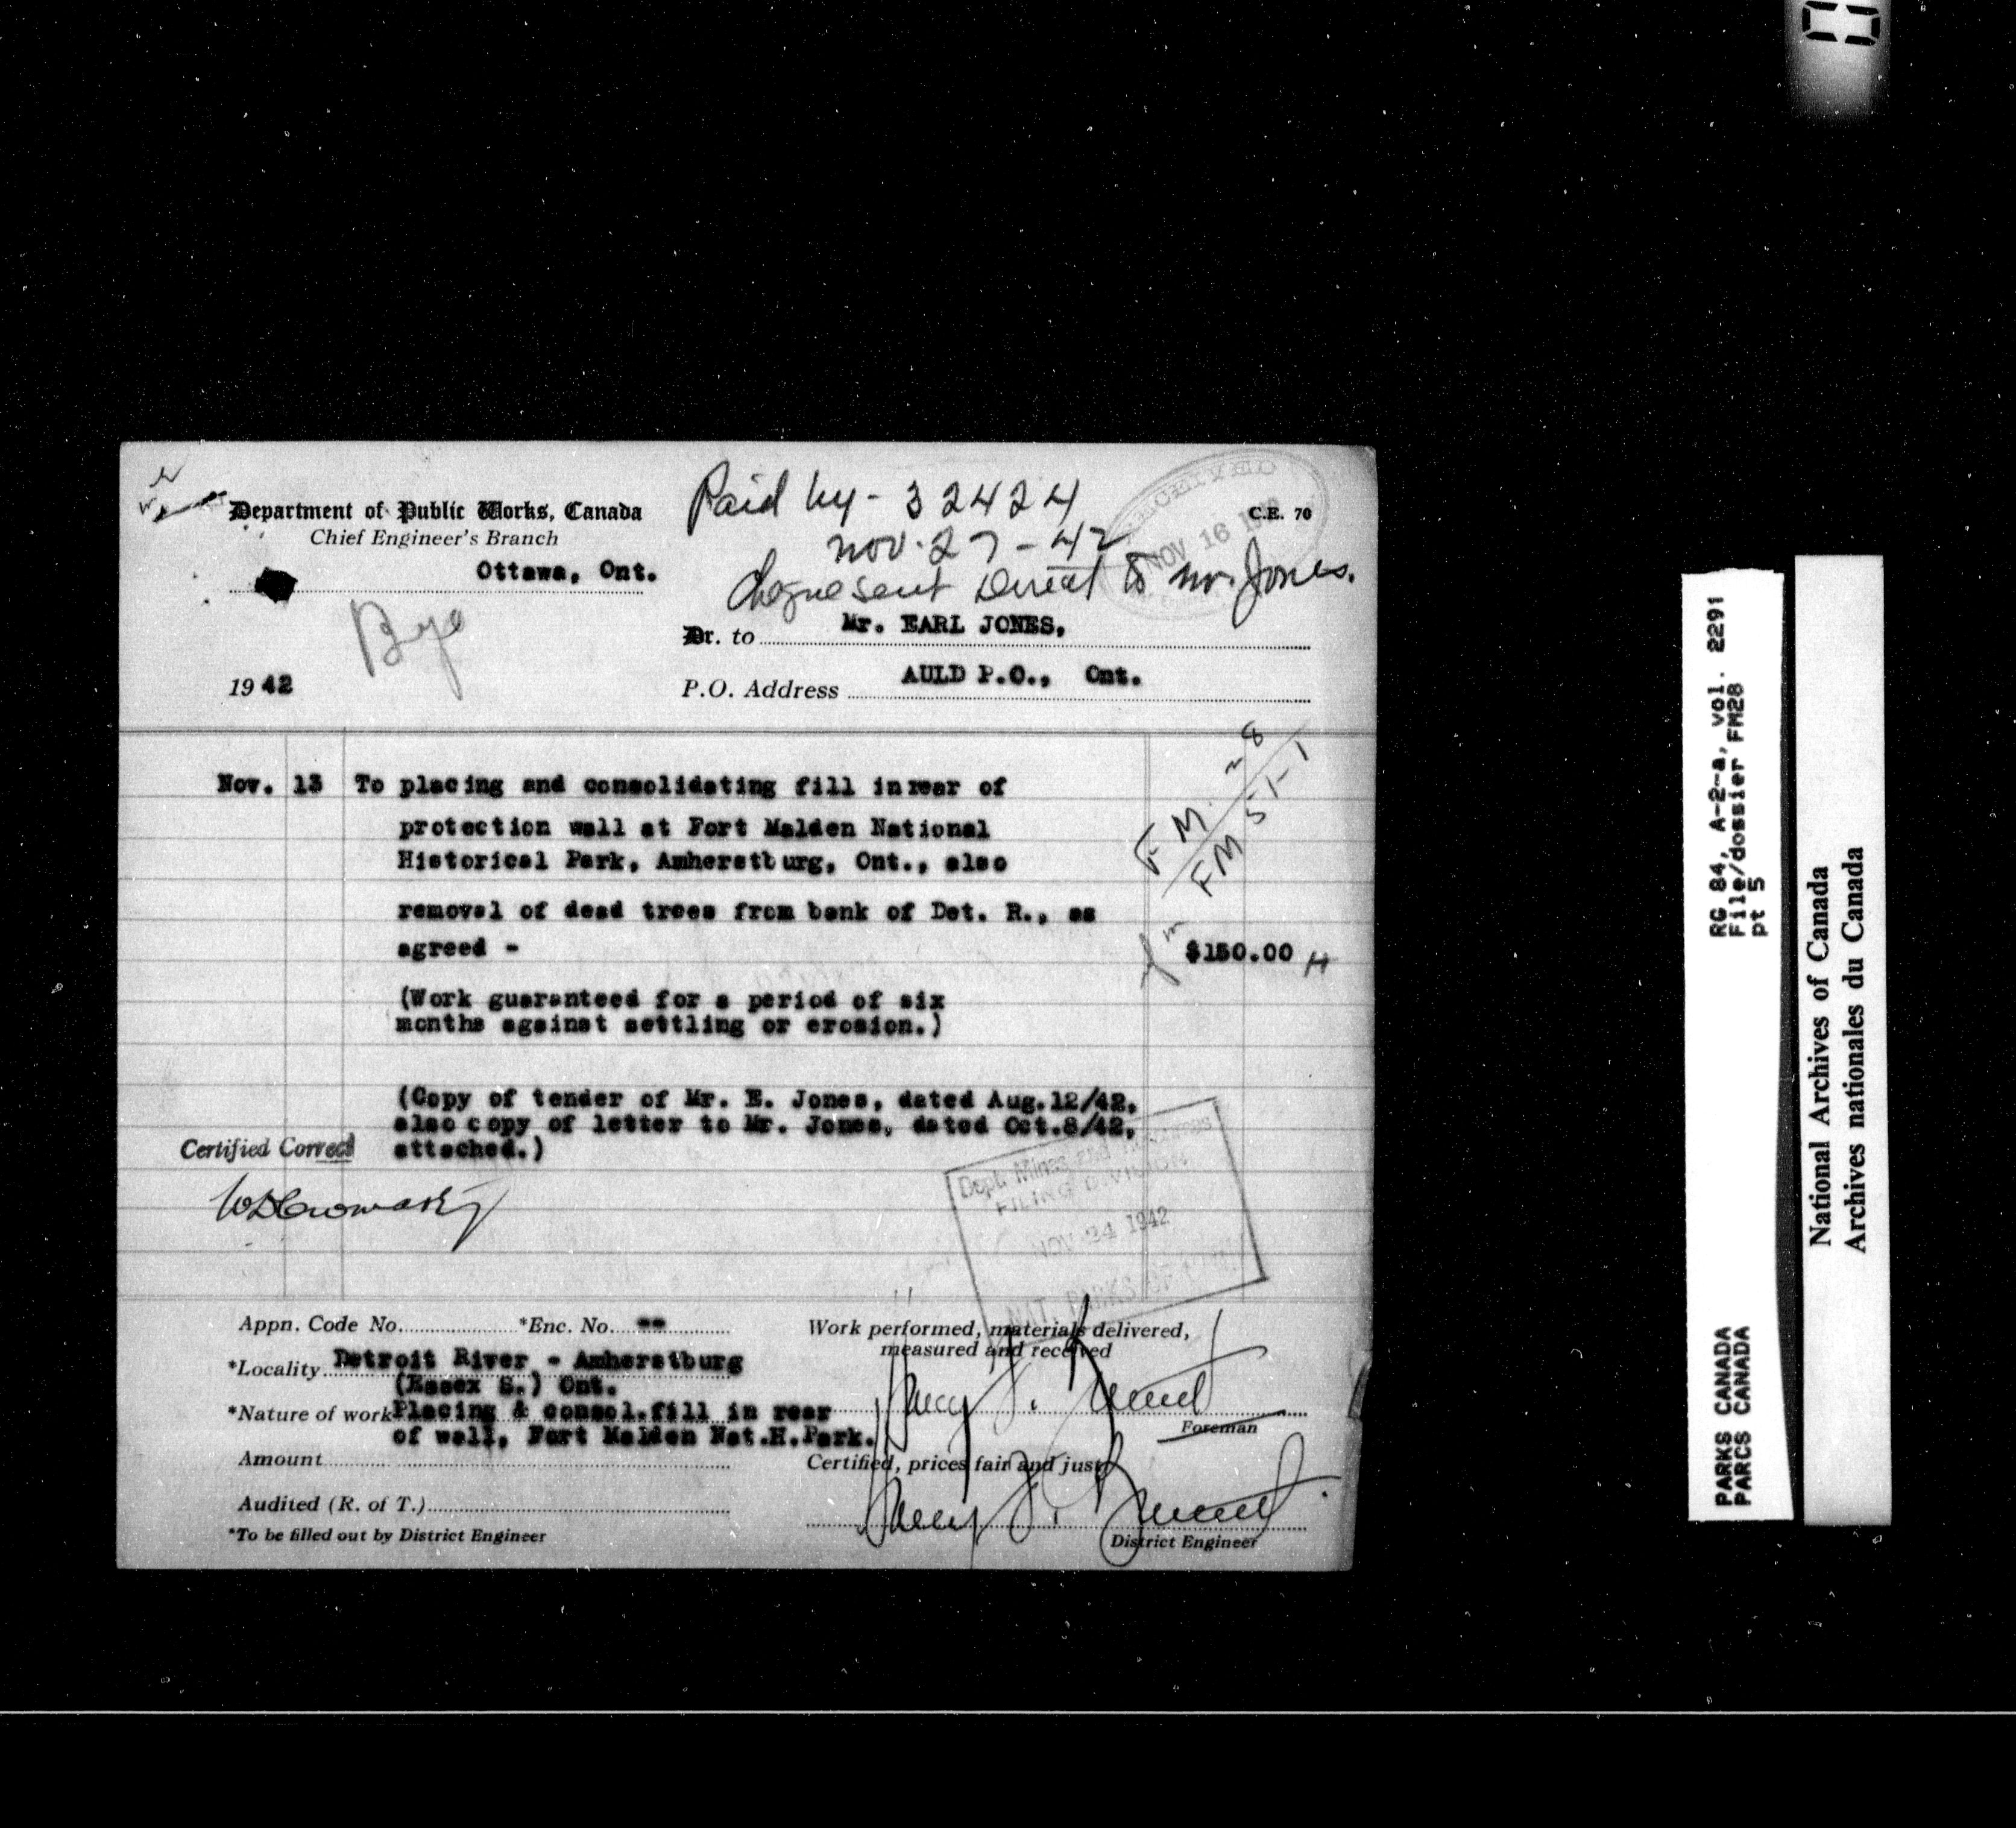 Department of Public Works, Canada
Chief Engineer's Branch
Ottawa, Ont.
Paid by - 32424
Nov. 27 - 42
Cheque sent Direct to Mr. Jones.
C.E. 70
RECEIVED
NOV 16 1942
Dr. to Mr. EARL JONES,
1942
P.O. Address AULD P.O., Ont.
F.M. 28
FM 51-1
Nov. 13 To placing and consolidating fill in rear of
protection wall at Fort Malden National
Historical Park, Amherstburg, Ont., also
removal of dead trees from bank of Det. R., as
agreed - $150.00 H
(Work guaranteed for a period of six
months against settling or erosion.)
(Copy of tender of Mr. E. Jones, dated Aug.12/42,
also copy of letter to Mr. Jones, dated Oct.8/42,
attached.)
Certified Correct
Dept. Mines and Resources
FILING DIVISION
NOV 24 1942
NAT. PARKS OF
Appn. Code No. *Enc. No. --
*Locality Detroit River - Amherstburg
(Essex S.) Ont.
*Nature of work Placing & consol.fill in rear
of wall, Fort Malden Nat.H.Park.
Amount
Audited (R. of T.)
*To be filled out by District Engineer
Work performed, materials delivered,
measured and received
Foreman
Certified, prices fair and just
District Engineer
RG 84, A-2-a, vol. 2291
File/dossier FM28
pt 5
PARKS CANADA
PARCS CANADA
National Archives of Canada
Archives nationales du Canada